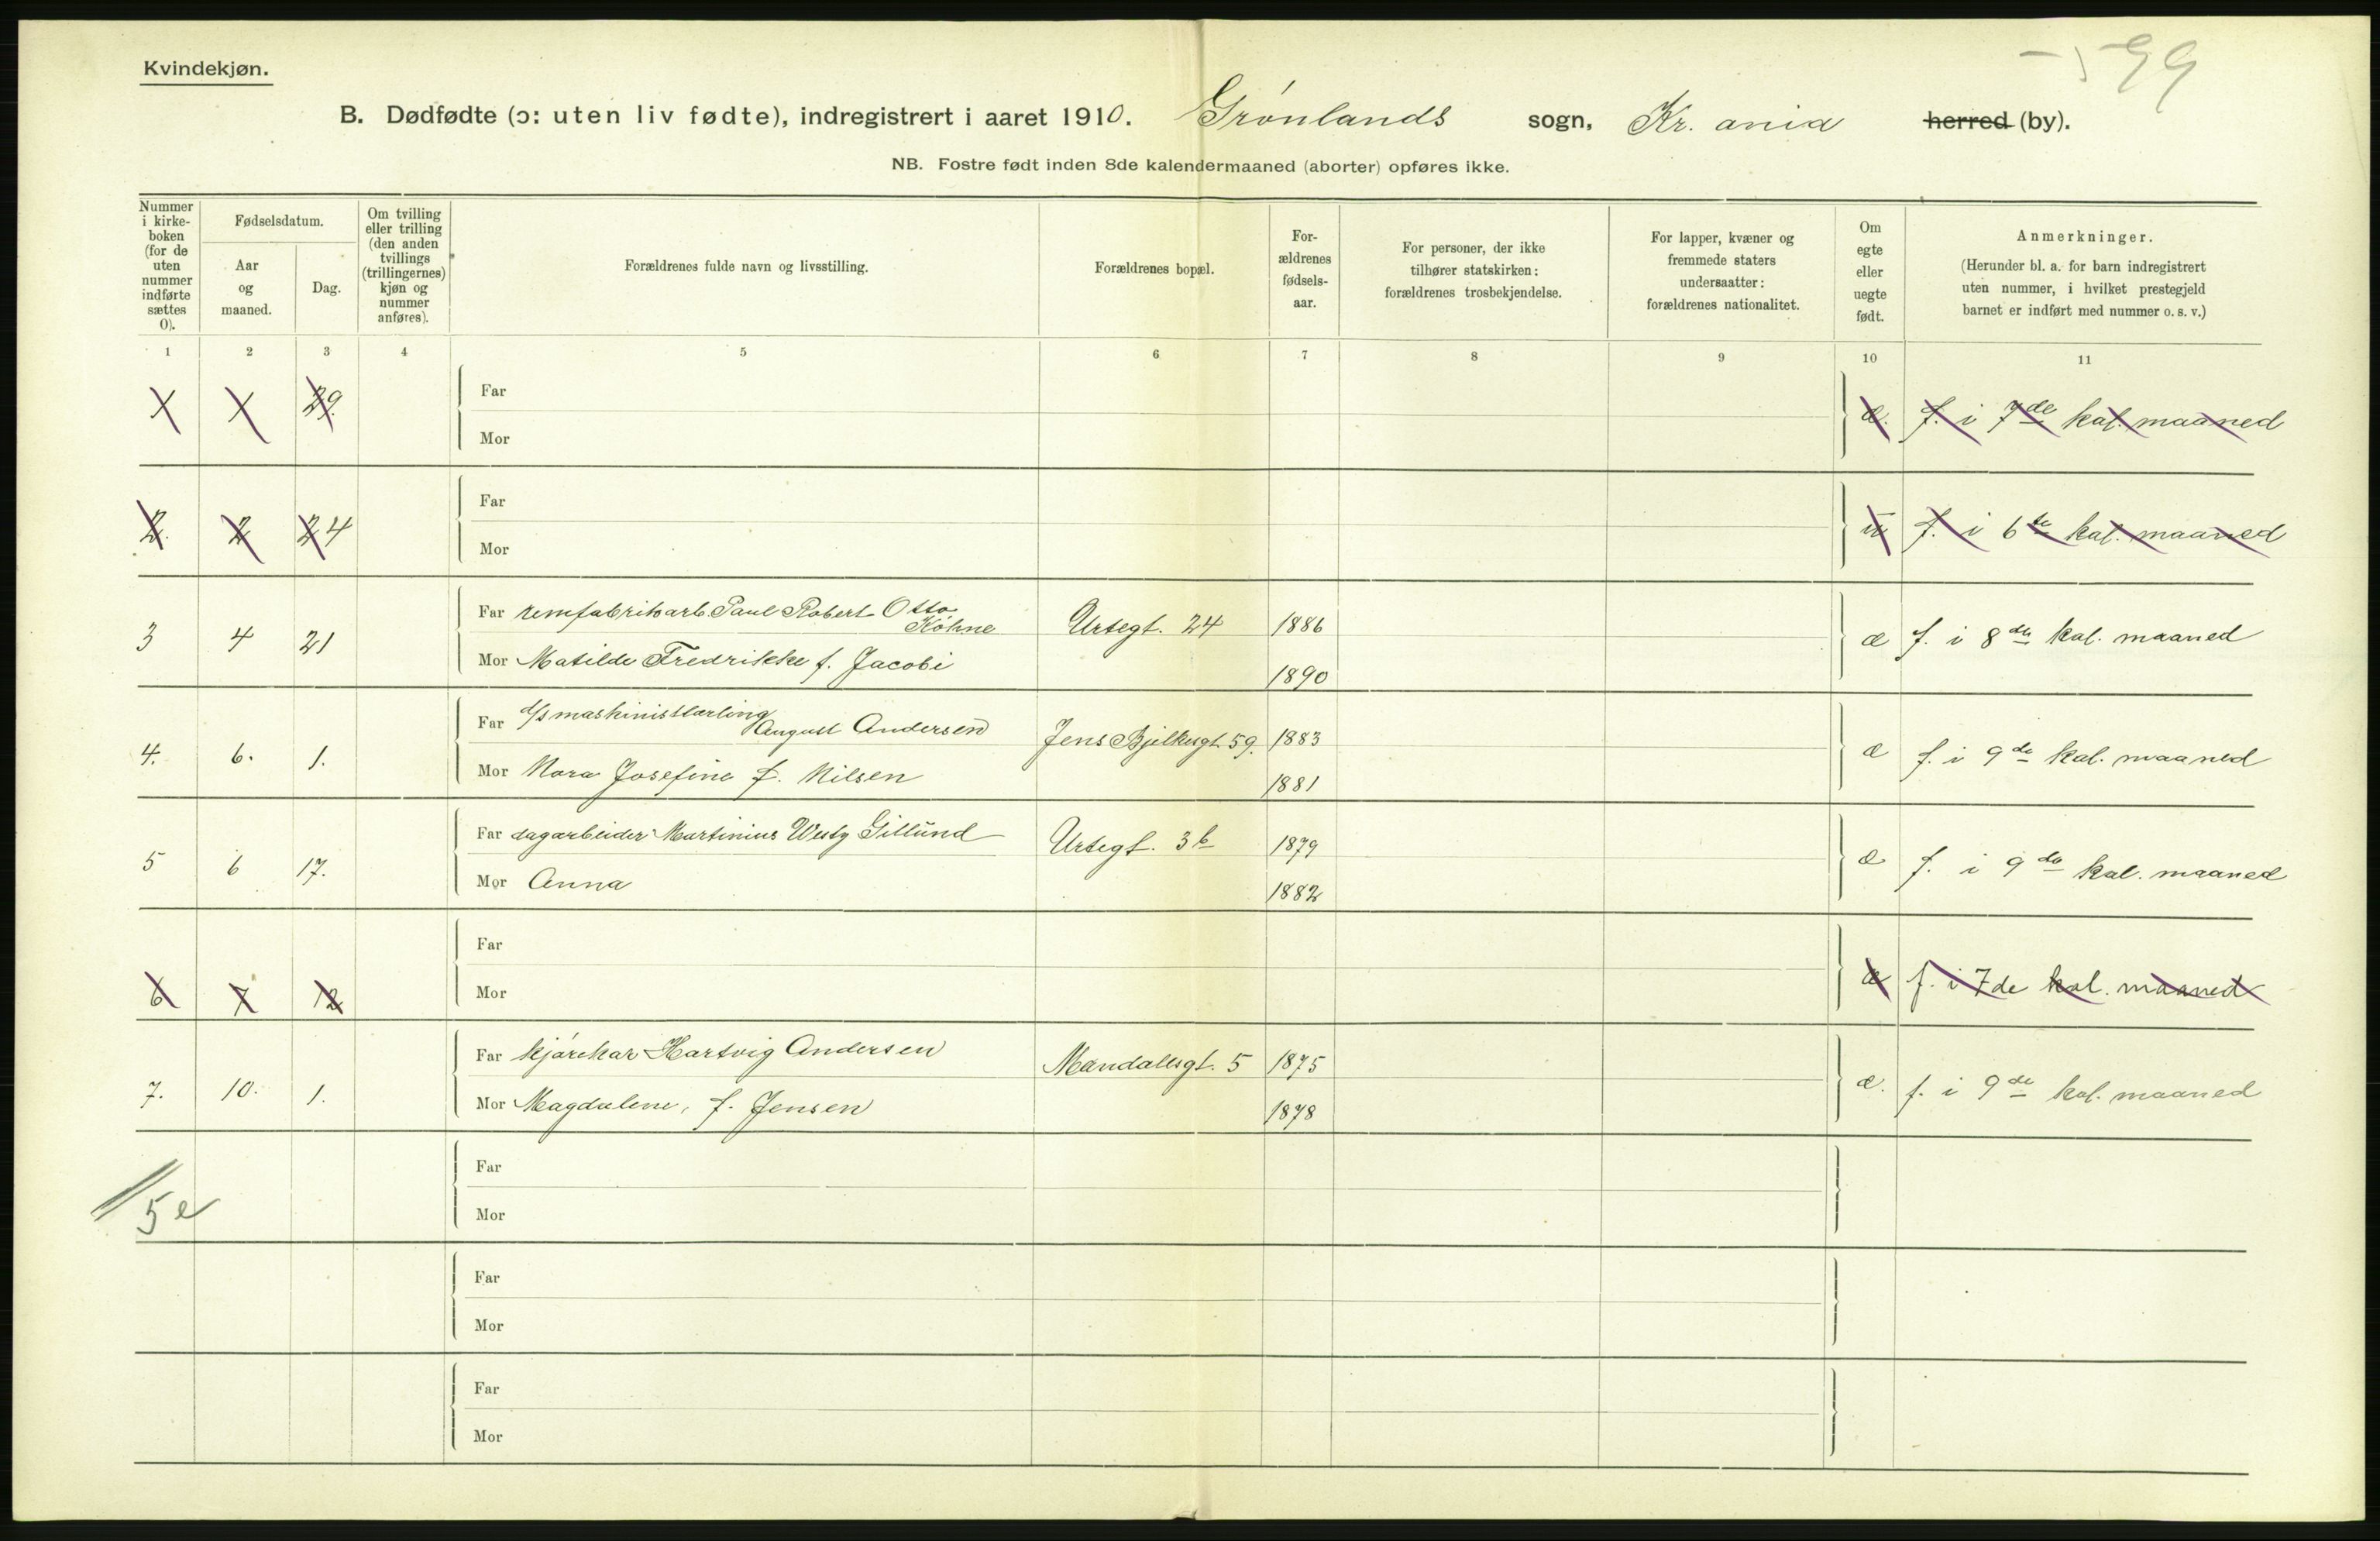 Kvindekjøn.
99
B. Dødfødte (ɔ: uten liv fødte), indregistrert i aaret 1910. Grønlands sogn, Kr.ania herred (by).
NB. Fostre født inden 8de kalendermaaned (aborter) opføres ikke.
Nummer i kirke- boken (for de uten nummer indførte sættes 0).
Fødselsdatum.
Aar og maaned.
Dag.
Om tvilling eller trilling (den anden tvillings (trillingernes) kjøn og nummer anføres).
Forældrenes fulde navn og livsstilling.
Forældrenes bopæl.
For- ældrenes fødsels- aar.
For personer, der ikke tilhører statskirken: forældrenes trosbekjendelse.
For lapper, kvæner og fremmede staters undersaatter: forældrenes nationalitet.
Om egte eller uegte født.
Anmerkninger.
(Herunder bl. a. for barn indregistrert uten nummer, i hvilket prestegjeld barnet er indført med nummer o. s. v.)
1 2 3 4 5 6 7 8 9 10 11
1 1 29. Far æ. f. i 7de kal. maaned
Mor
2. 2 24 Far u f. i 6te kal. maaned
Mor
3 4 21 Far remfabrikarb. Paul Robert Otto Köhne Urtegt. 24 1886 æ f. i 8de kal. maaned
Mor Matilde Fredrikke f. Jacobi 1890
4. 6. 1. Far maskinistlærling August Andersen Jens Bjelkesgt. 59. 1883 æ f. i 9de kal. maaned
Mor Nora Josefine f. Nilsen 1881
5 6 17. Far dagarbeider Martinius Westy Gillund Urtegt. 3b 1879 æ f. i 9de kal. maaned
Mor Anna 1882
6 7 12 Far æ f. i 7de kal. maaned
Mor
7. 10. 1. Far kjørekar Hartvig Andersen Mandallsgt. 5 1875 æ. f. i 9de kal. maaned
Mor Magdalene, f. Jensen 1878
Far
5e
Mor
Far
Mor
Far
Mor